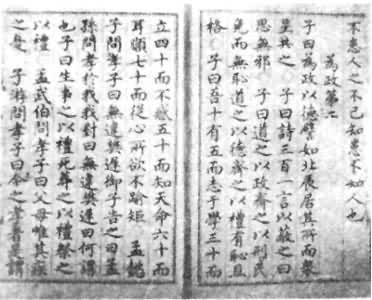 不患人之不己知患不知人也
為政第二
子曰為政以德譬如北辰居其所而衆
星共之 子曰詩三百一言以蔽之曰
思無邪 子曰道之以政齊之以刑民
免而無恥道之以德齊之以禮有恥且
格 子曰吾十有五而志于學三十而
立四十而不惑五十而知天命六十而
耳順七十而從心所欲不踰矩 孟懿
子問孝子曰無違樊遲御子告之曰孟
孫問孝於我我對曰無違樊遲曰何謂
也子曰生事之以禮死葬之以禮祭之
以禮 孟武伯問孝子曰父母唯其疾
之憂 子游問孝子曰今之孝者是謂